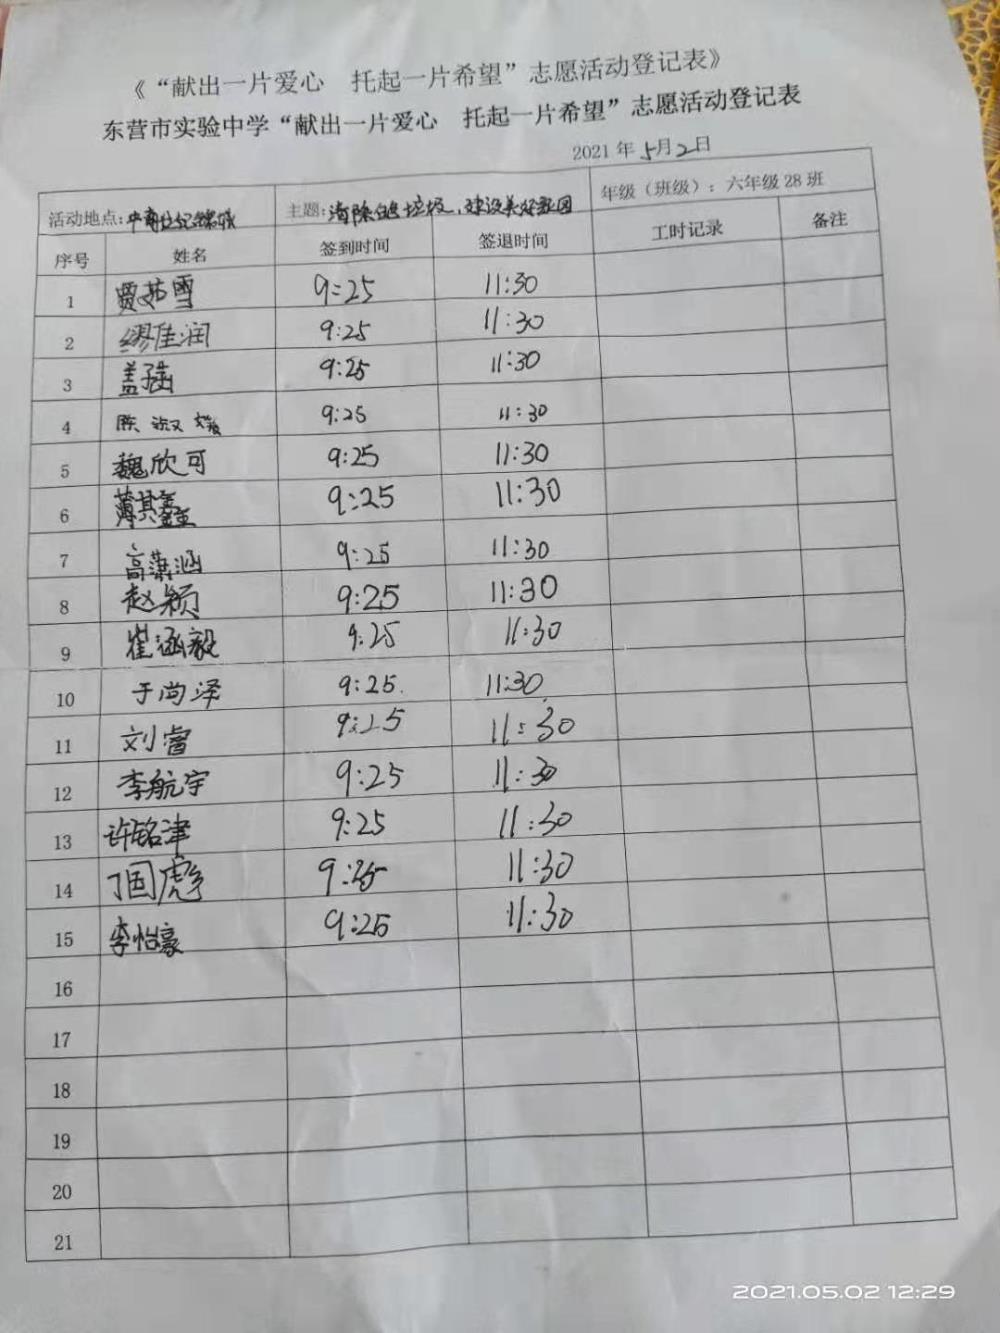 《“献出一片爱心　托起一片希望”志愿活动登记表》
东营市实验中学“献出一片爱心　托起一片希望”志愿活动登记表
2021 年 5月2日
活动地点: 主题: 清除白色垃圾，建设美好家园 年级（班级）：六年级 28 班
序号 姓名 签到时间 签退时间 工时记录 备注
1 贾茹雪 9:25 11:30
2 缪佳润 9:25 11:30
3 盖瑶 9:25 11:30
4 陈 9:25 11:30
5 魏欣可 9:25 11:30
6 薄其鑫 9:25 11:30
7 高潇涵 9:25 11:30
8 赵颖 9:25 11:30
9 崔涵毅 9:25 11:30
10 于尚泽 9:25 11:30
11 刘睿 9:25 11:30
12 李航宇 9:25 11:30
13 许铭津 9:25 11:30
14 丁国彪 9:25 11:30
15 李怡豪 9:25 11:30
16
17
18
19
20
21
2021.05.02 12:29